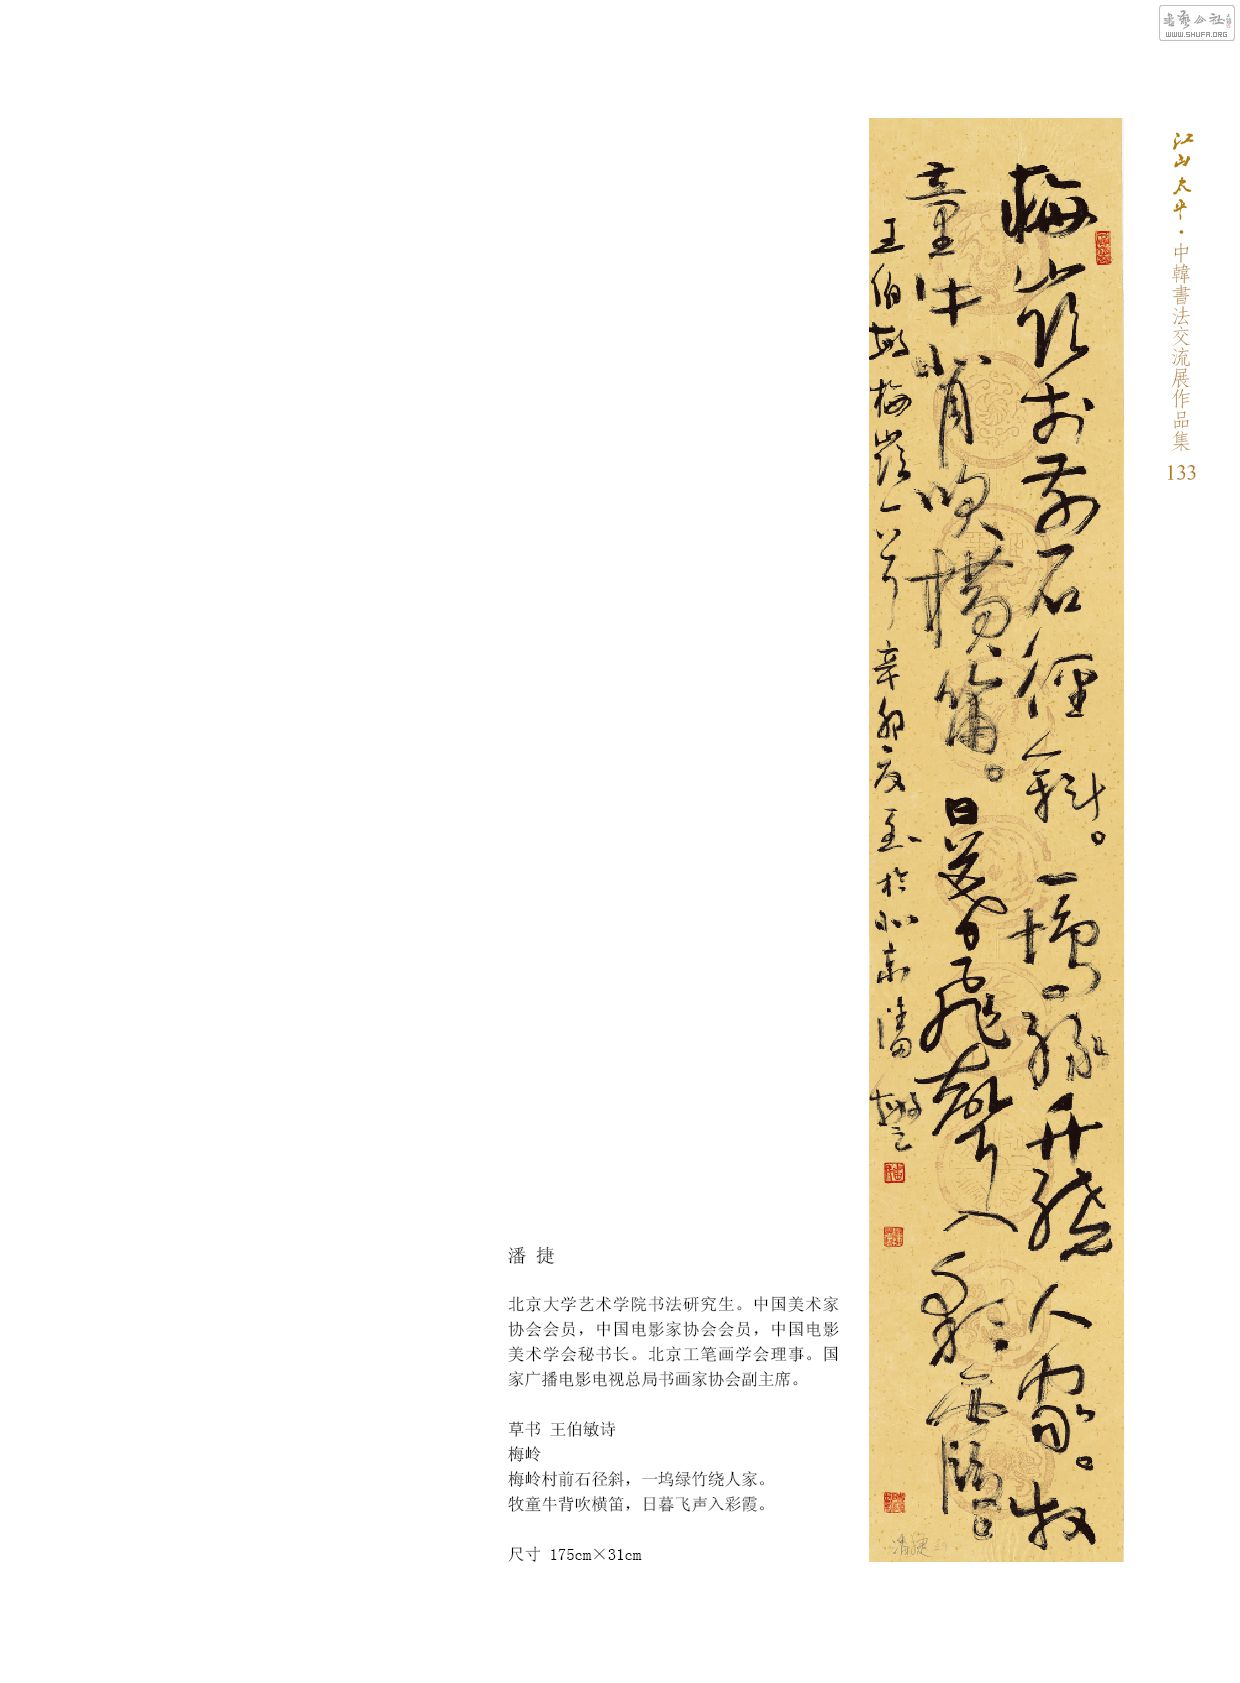 WWW.SHUFA.ORG
江山太平·中韓書法交流展作品集
133
梅岭村前石径斜。一塢綠竹繞人家。牧
童牛背吹横笛。日暮飛聲入彩霞
王伯敏梅岭一首 辛卯夏至於北京潘捷
潘 捷
北京大学艺术学院书法研究生。中国美术家
协会会员，中国电影家协会会员，中国电影
美术学会秘书长。北京工笔画学会理事。国
家广播电影电视总局书画家协会副主席。
草书 王伯敏诗
梅岭
梅岭村前石径斜，一坞绿竹绕人家。
牧童牛背吹横笛，日暮飞声入彩霞。
尺寸 175cm×31cm